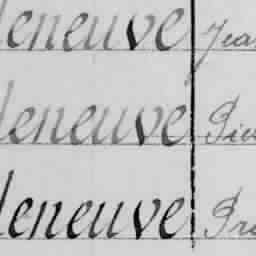 leneuve Jea
leneuve Pie
leneuve Pr